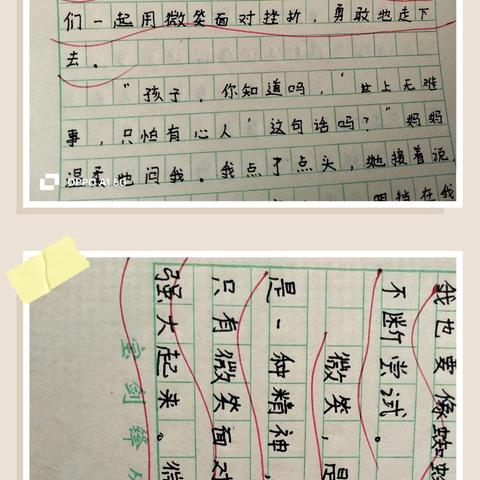 们一起用微笑面对挫折，勇敢地走下
去。
“孩子，你知道吗，‘世上无难
事，只怕有心人’这句话吗？”妈妈
温柔地问我。我点了点头，她接着说，
OPPO A1 5G
挡在我
我也要像蜘蛛
不断尝试。
微笑，是
是一种精神，
只有微笑面对
强大起来。
宝剑锋从